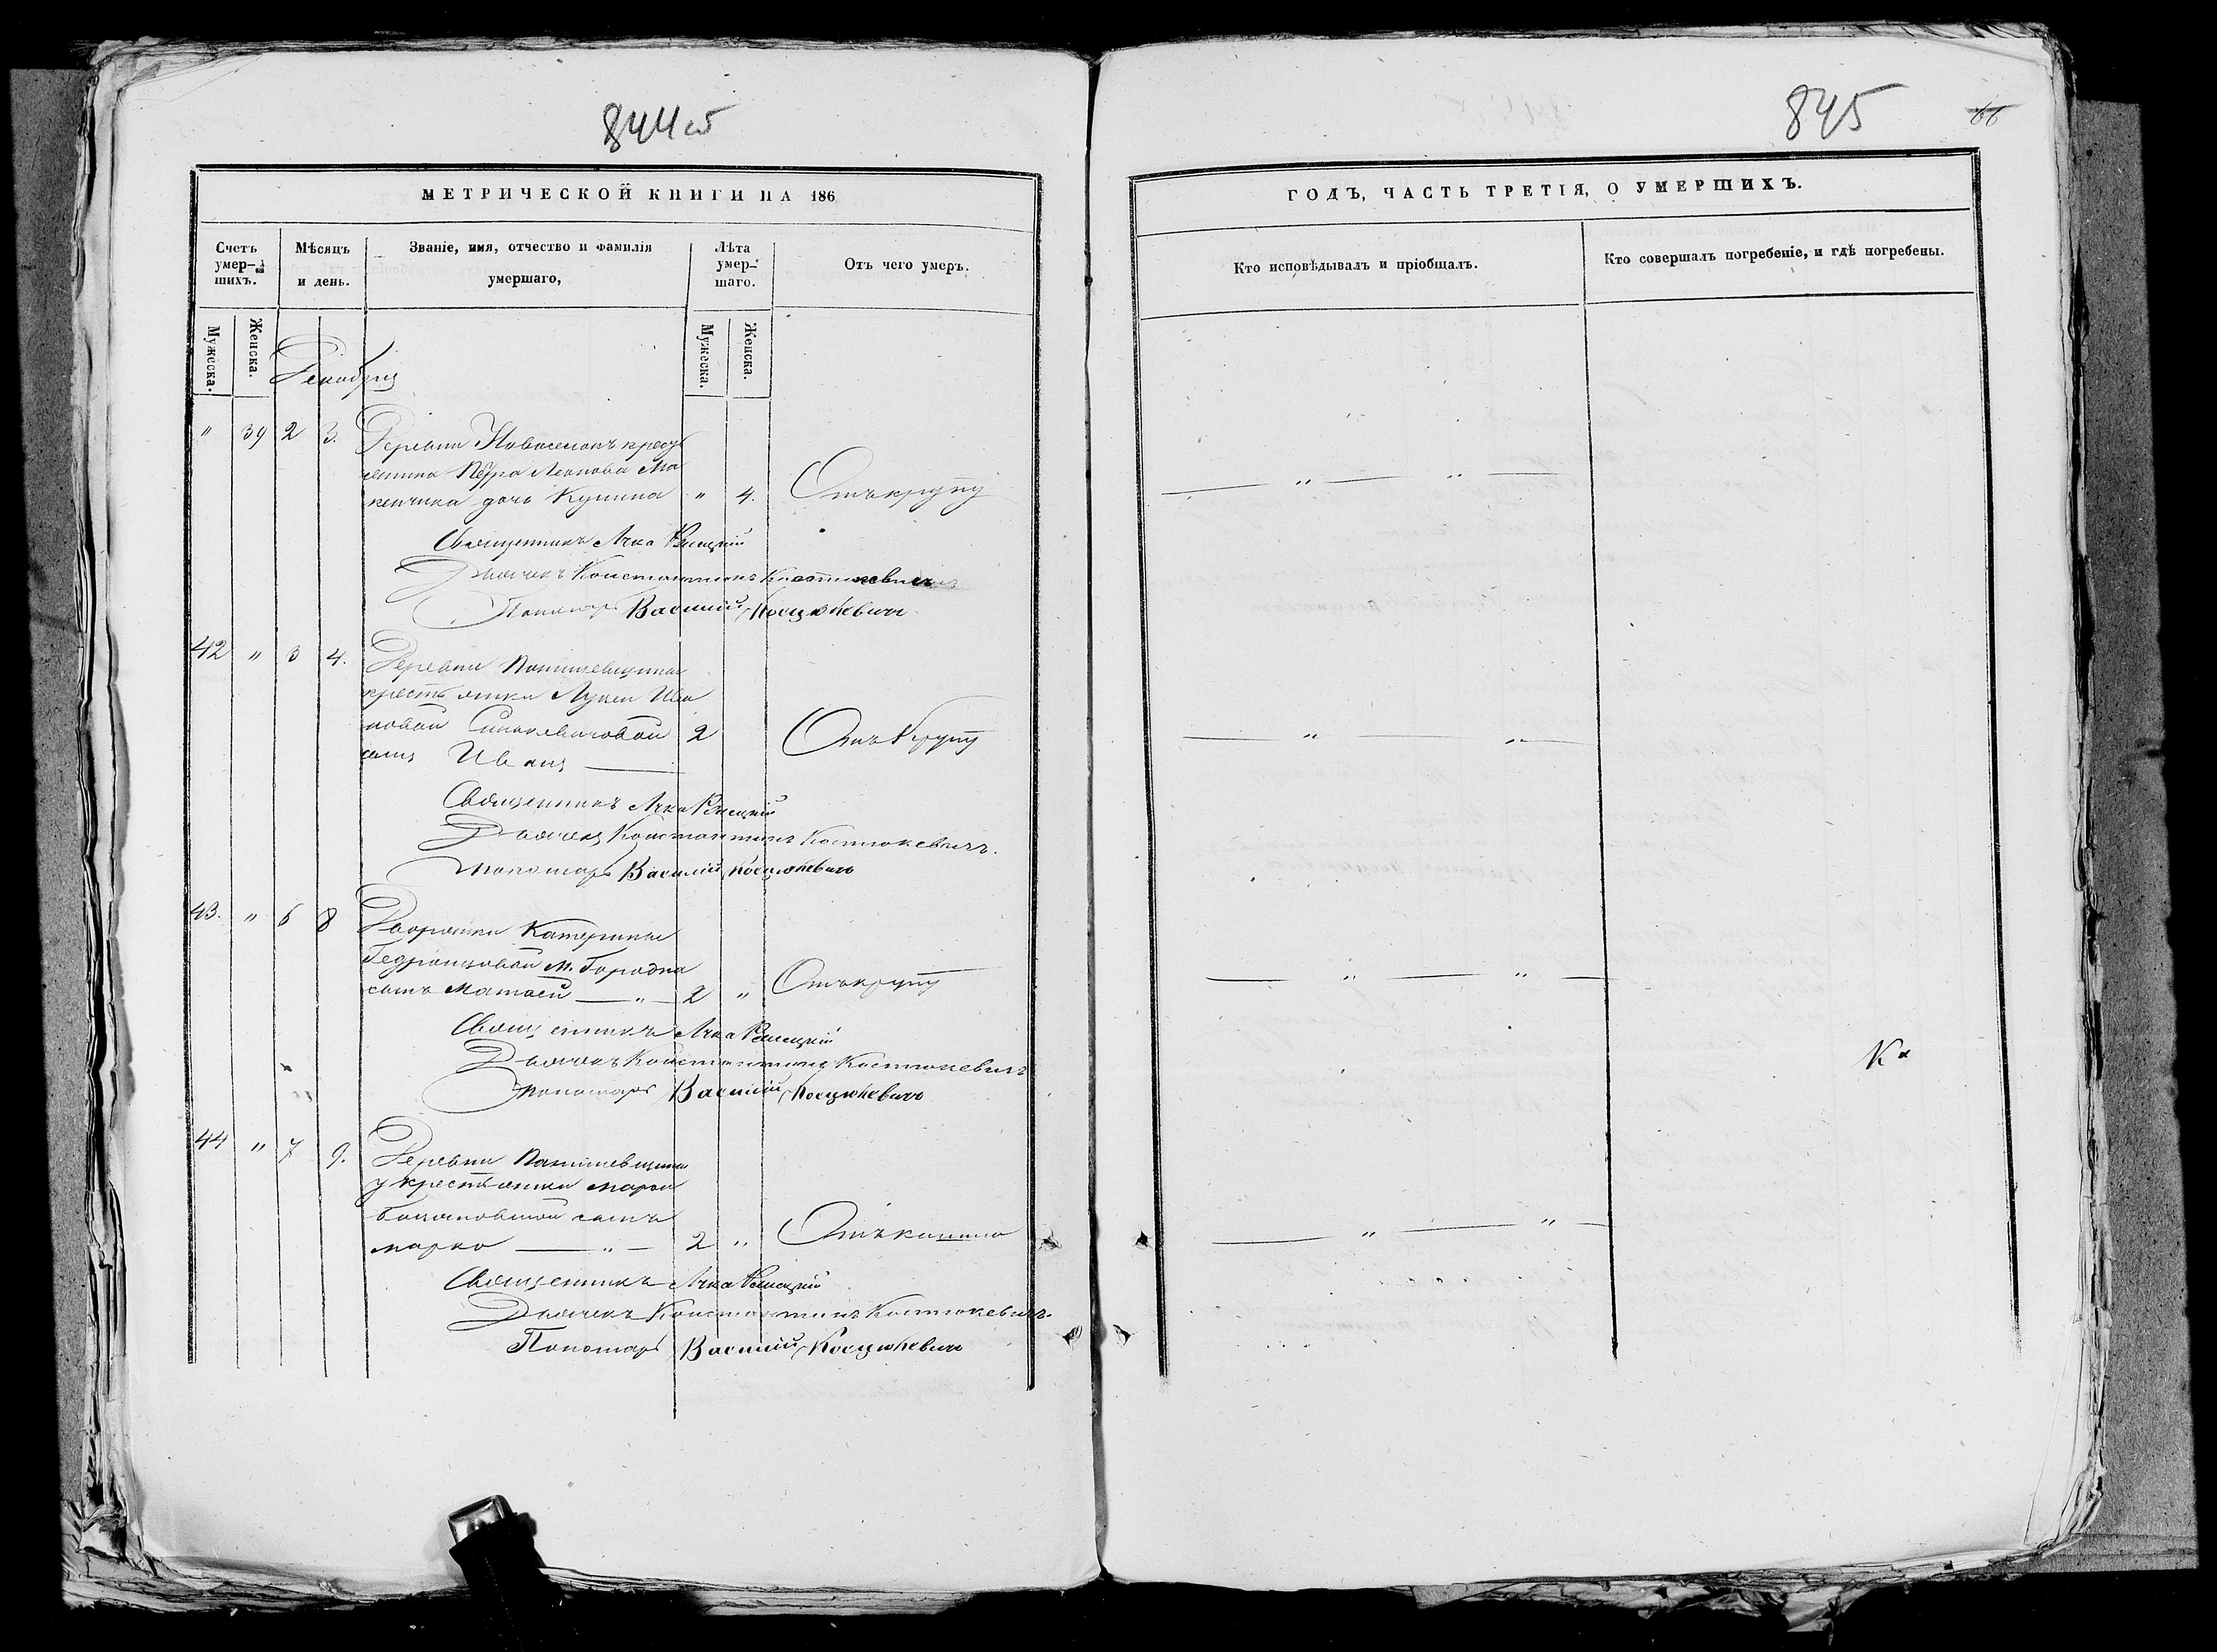 844 об
845
66
МЕТРИЧЕСКОЙ КНИГИ НА 186
ГОДЪ, ЧАСТЬ ТРЕТІЯ, О УМЕРШИХЪ.
Счетъ умер-шихъ.
Мѣсяцъ и день.
Званіе, имя, отчество и фамилія умершаго,
Лѣта умер-шаго.
Отъ чего умеръ.
Кто исповѣдывалъ и пріобщалъ.
Кто совершалъ погребеніе, и гдѣ погребены.
Мужеска.
Женска.
Мужеска.
Женска.
Декабрь
" 39 2 3. Деревни Новоселокъ крест
янина Петра Леонова Ма
кенчика дочь Кулина " 4. Отъ крупу
Священникъ Лука Рѣчицкій
Дьячекъ Константинъ Костюкевичъ
Пономарь Василій Косцюкевичъ
42 " 3 4. Деревни
крестьянки Лукеи Ива
новой Синкевичовой 2 Отъ крупу
сынъ Иванъ
Священникъ Лука Рѣчицкій
Дьячекъ Константинъ Костюкевичъ.
Пономарь Василій Косцюкевичъ
43. " 6 8 Дворянки Катерины
Гедроицовой М. Городна
сынъ Матвей — " — 2 " Отъ крупу
Священникъ Лука Рѣчицкій
Дьячекъ Константинъ Костюкевичъ
Пономарь Василій Косцюкевичъ
44 " 7 9. Деревни
у крестьянки Марьи
сынъ
Марко — " — 2 " Отъ кашлю
Священникъ Лука Рѣчицкій
Дьячекъ Константинъ Костюкевичъ.
Пономарь Василій Косцюкевичъ